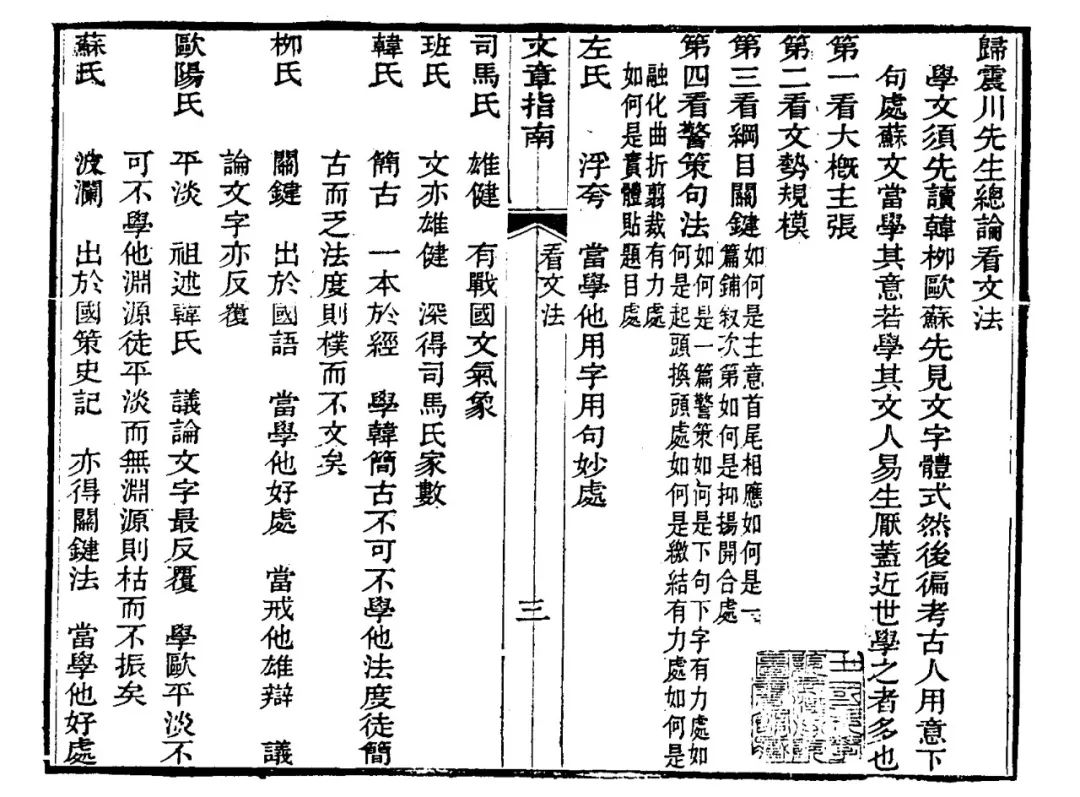 歸震川先生總論看文法
學文須先讀韓柳歐蘇先見文字體式然後徧考古人用意下
句處蘇文當學其意若學其文人易生厭蓋近世學之者多也
第一看大槪主張
第二看文勢規模
第三看綱目關鍵
如何是主意首尾相應如何是一
篇鋪敘次第如何是抑揚開合處
第四看警策句法
如何是一篇警策如何是下句下字有力處如
何是起頭換頭處如何是繳結有力處如何是
融化曲折翦裁有力處
如何是實體貼題目處
左氏 浮夸 當學他用字用句妙處
文章指南 看文法 三
司馬氏 雄健 有戰國文氣象
班氏 文亦雄健 深得司馬氏家數
韓氏 簡古 一本於經 學韓簡古不可不學他法度徒簡
古而乏法度則樸而不文矣
柳氏 關鍵 出於國語 當學他好處 當戒他雄辯 議
論文字亦反覆
歐陽氏 平淡 祖述韓氏 議論文字最反覆 學歐平淡不
可不學他淵源徒平淡而無淵源則枯而不振矣
蘇氏 波瀾 出於國策史記 亦得關鍵法 當學他好處